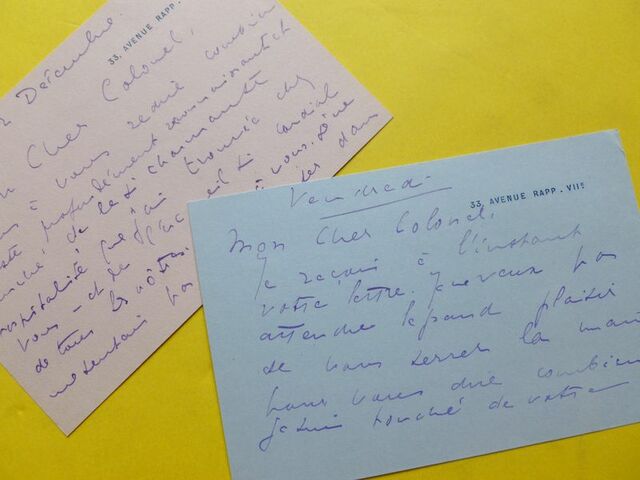 Décembre.
33, AVENUE RAPP.
Cher Colonel,
à vous redire combien
profondément reconnaissant et
touché de la si charmante
hospitalité que j'ai trouvée chez
vous - et de l'accueil si cordial
de tous les vôtres. à vous dire
dans
Vendredi
33, AVENUE RAPP. VIIe
Mon Cher Colonel,
Je reçois à l'instant
votre lettre. Je ne veux pas
attendre le grand plaisir
de vous serrer la main
pour vous dire combien
je suis touché de votre